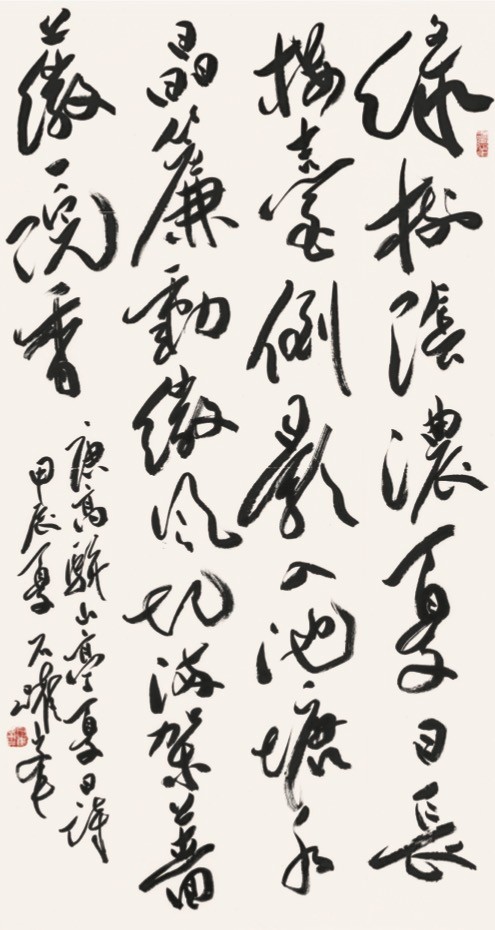 緑樹陰濃夏日長
樓臺倒影入池塘水
晶簾動微風起滿架薔
薇一院香
唐高駢山亭夏日詩
甲辰夏 石耀峯